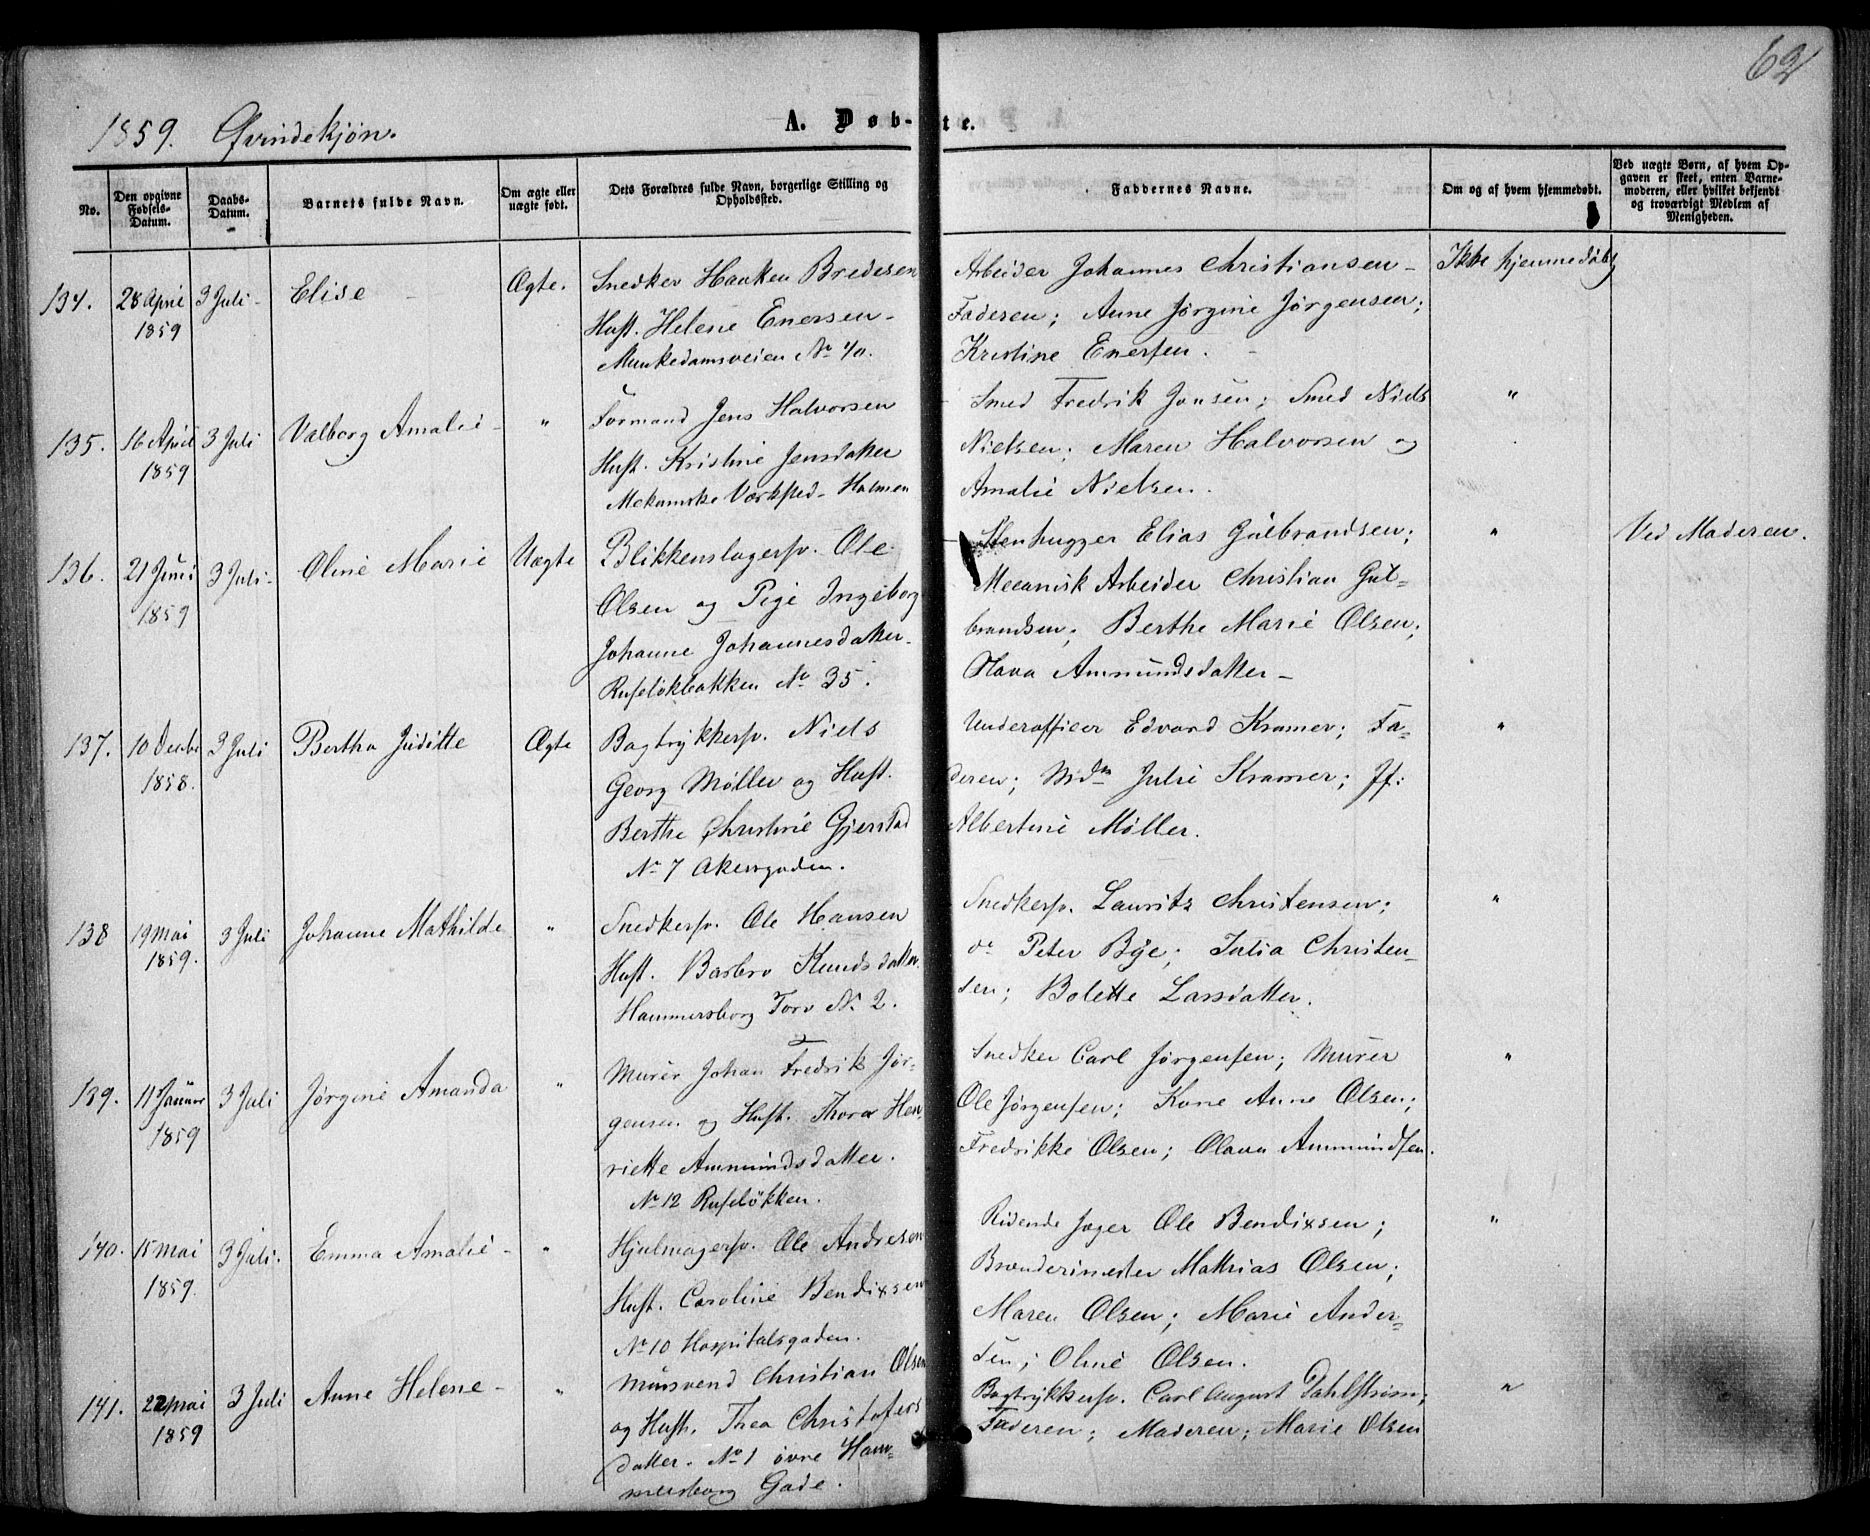 62
1859. Qvindekjøn.
A. Døb-te.
No.
Den opgivne Fødsels-Datum.
Daabs-Datum.
Barnets fulde Navn.
Om ægte eller uægte født.
Dets Forældres fulde Navn, borgerlige Stilling og Opholdssted.
Faddernes Navne.
Om og af hvem hjemmedøbt.
Ved uægte Børn, af hvem Opgaven er skeet, enten Barnemoderen, eller hvilket bekjendt og troværdigt Medlem af Menigheden.
134. 28 April 1859 3 Juli - Elise - Ægte.
Snedker Haaken Bredesen
Hust. Helene Enersen -
Munkedamsveien No 40.
Arbeider Johannes Christiansen -
Faderen; Anne Jørgine Jørgensen;
Kristine Enersen. -
Ikke hjemmedøbt
135. 16 April 1859 3 Juli Valborg Amalie - "
Formand Jens Halvorsen
Hust. Kristine Jensdatter
Mekaniske Værksted - Holmen
Smed Fredrik Jonsen; Smed Niels
Nielsen; Maren Halvorsen og
Amalie Nielsen.
"
136. 21 Juni 1859 3 Juli - Oline Marie Uægte
Blikkenslagersv. Ole
Olsen og Pige Ingeborg
Johanne Johannesdatter -
Ruseløkbakken No 35.
Stenhugger Elias Gulbrandsen;
Mecanisk Arbeider Christian Gul-
brandsen; Berthe Marie Olsen;
Olava Ammundsdatter -
"
Ved Moderen.
137. 10 Decebr 1858. 3 Juli Bertha Juditte Ægte
Bogtrykkersv. Niels
Georg Møller og Hust.
Berthe Christine Gjerstad
No 7 Akersgaden.
Underofficer Edvard Kramer; Fa-
deren; Md^m Julie Kramer; Jf:
Albertine Møller.
"
138 19 Mai 1859. 3 Juli Johanne Mathilde "
Snedkersv. Ole Hansen
Hust. Barbro Knudsdatter
Hammersborg Torv No 2.
Snedkersv. Lauritz Christensen;
do Peter Bye; Julia Christen-
sen; Bolette Larsdatter.
"
139. 11 Januar 1859 3 Juli Jørgine Amanda "
Murer Johan Fredrik Jør-
gensen og Hust. Thora Hen-
riette Ammundsdatter.
No 12 Ruseløkken.
Snedker Carl Jørgensen; Murer
Ole Jørgensen; Kone Anne Olsen;
Fredrikke Olsen; Olava Ammundsen.
"
140. 15 Mai 1859. 3 Juli. Emma Amalie - "
Hjulmagersv. Ole Andresen
Hust. Caroline Bendixsen
No 10 Hospitalsgaden.
Ridende Jæger Ole Bendixsen;
Brænderimester Mathias Olsen;
Maren Olsen; Marie Ander-
sen; Oline Olsen.
"
141. 22 Mai 1859 3 Juli Anne Helene - "
Muursvend Christian Olsen
og Hust. Thea Christofers
datter. No 1 øvre Ham-
mersborg Gade.
Bogtrykkersv. Carl August Dahlstrøm;
Faderen; Moderen; Marie Olsen
"